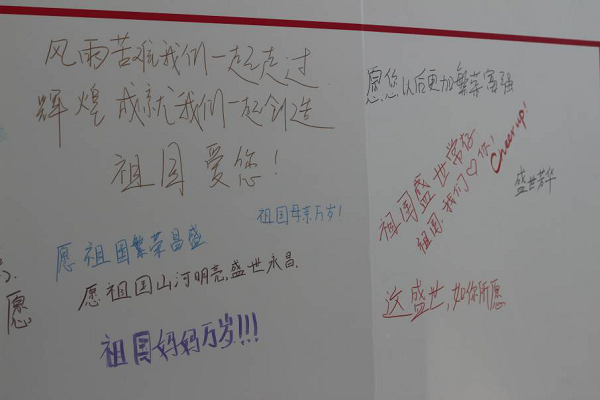 风雨苦难我们一起走过
辉煌成就我们一起创造
祖国爱您!
祖国母亲万岁!
愿祖国繁荣昌盛
愿祖国山河明亮,盛世永昌.
愿
祖国妈妈万岁!!!
愿您以后更加繁荣富强
祖国盛世常好
祖国,我们♡你!
Cheer up!
盛世芳华
这盛世,如你所愿